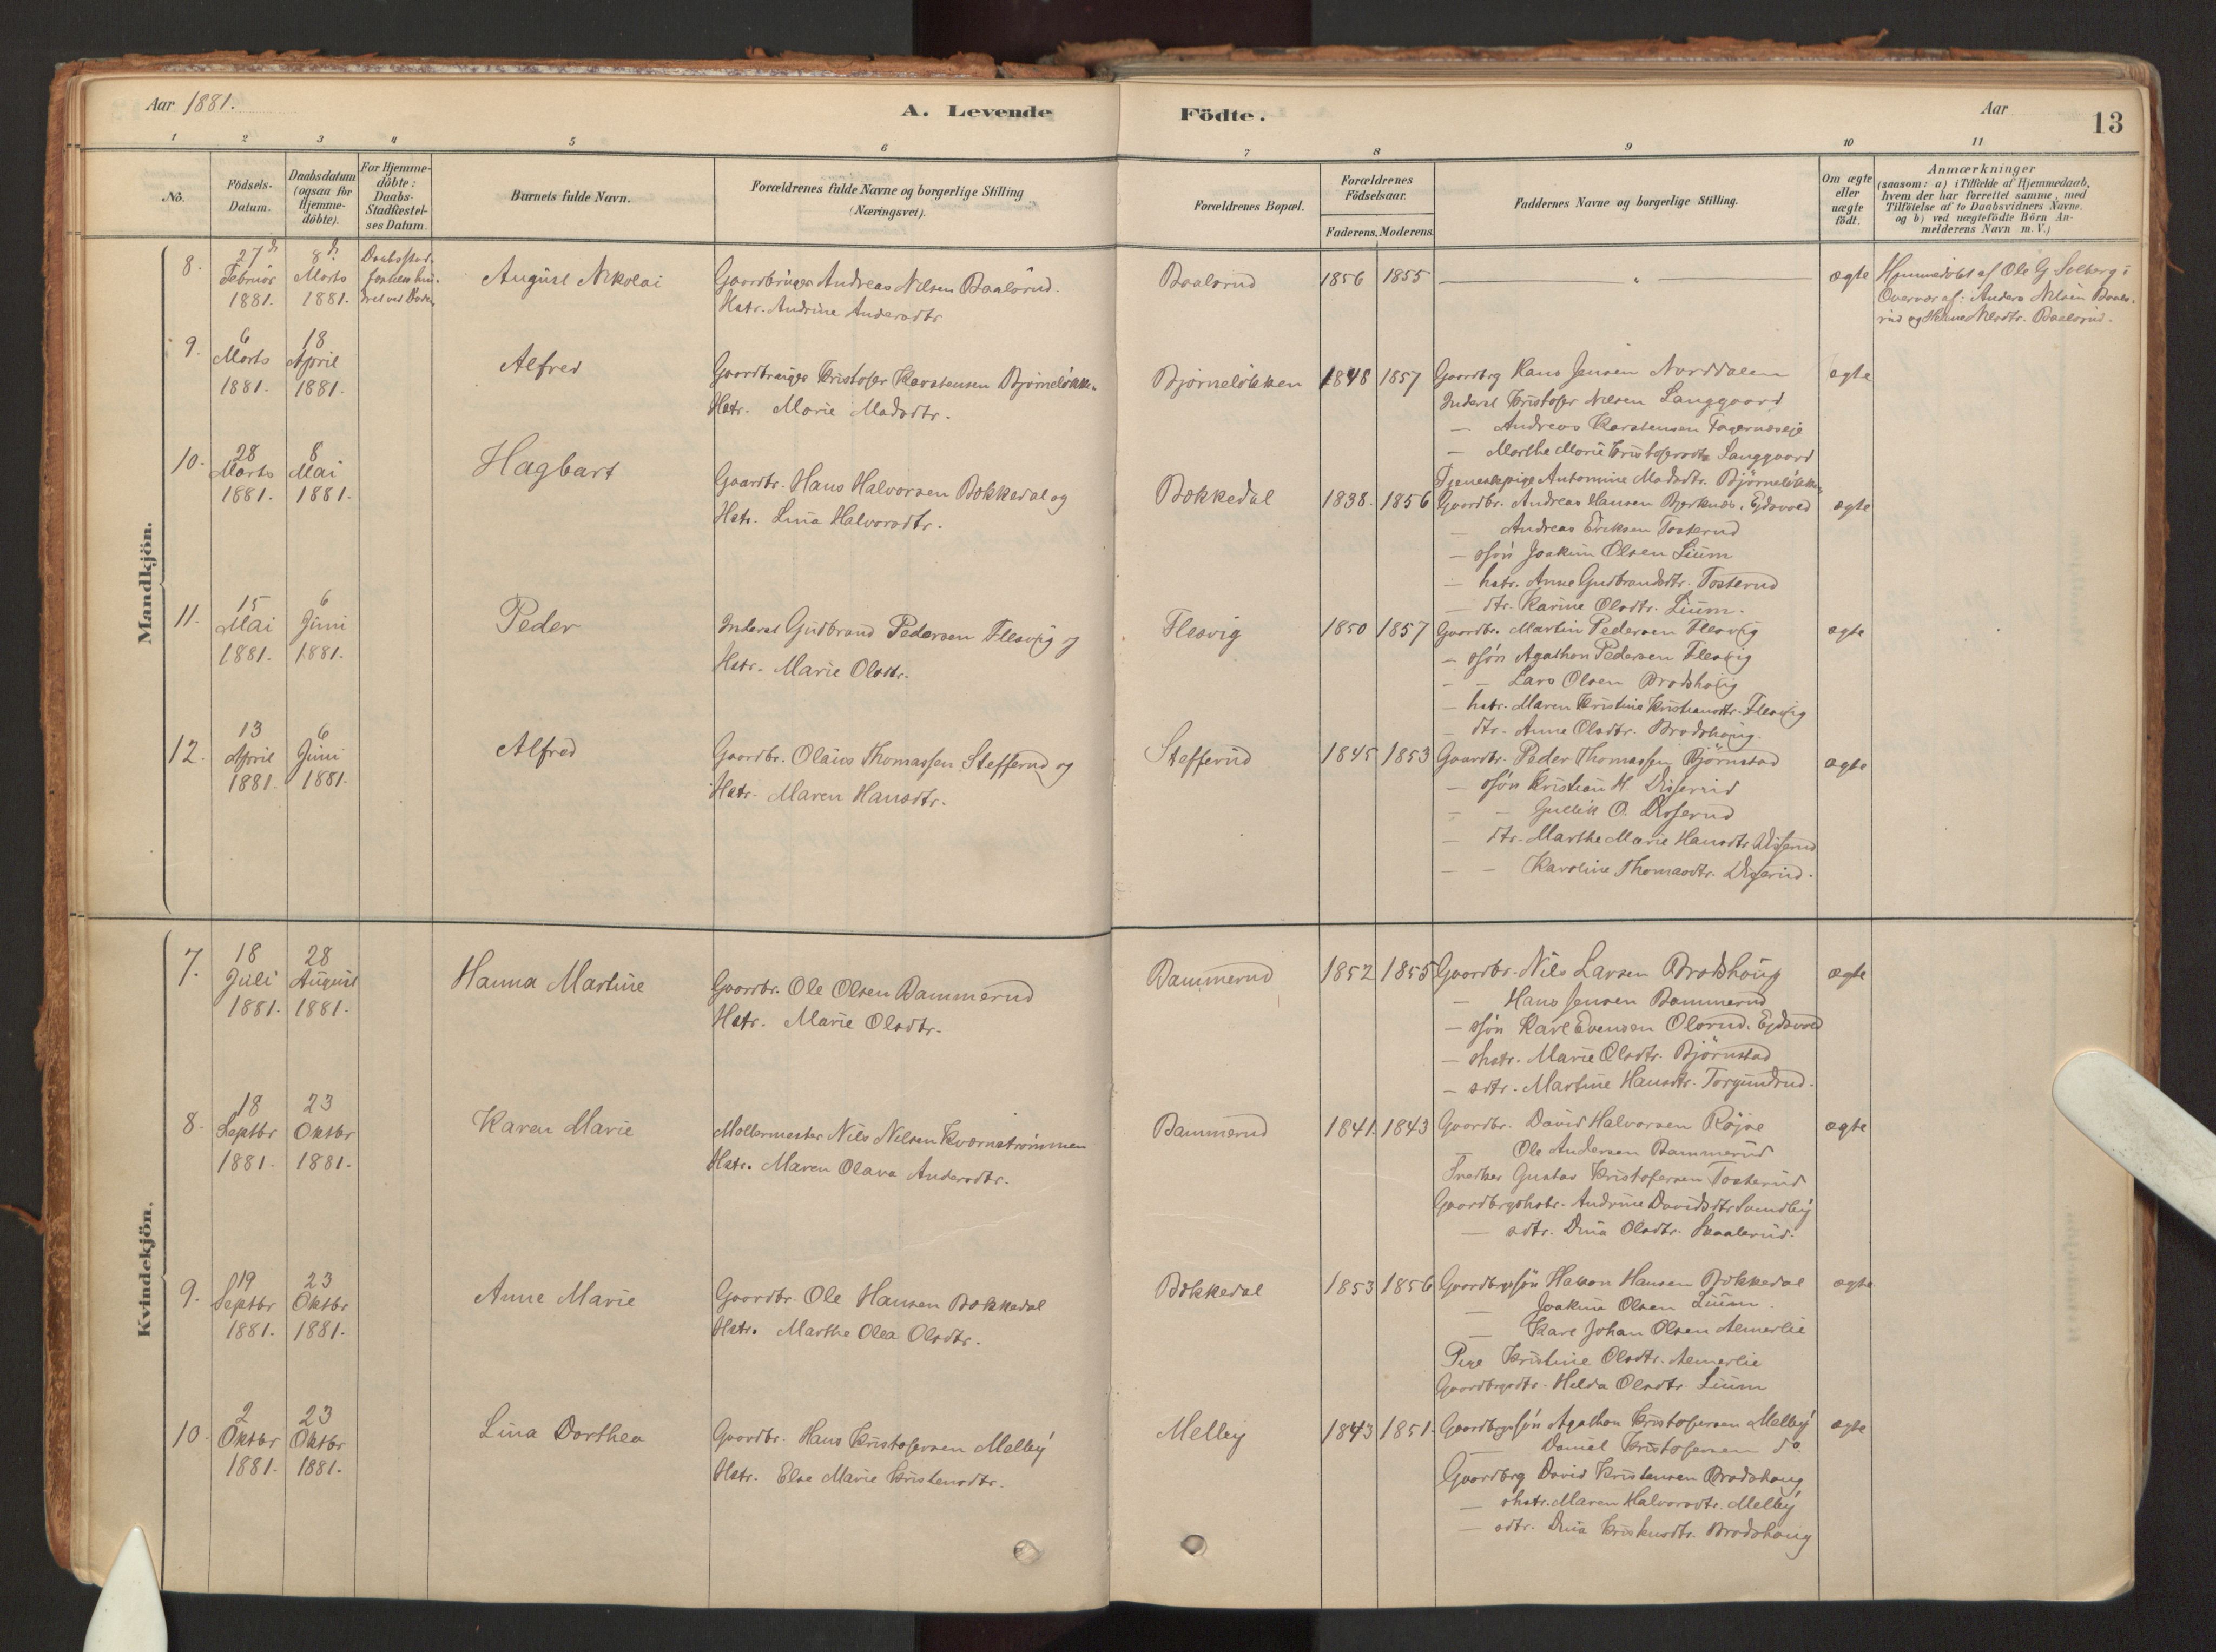 Aar 1881.
A. Levende Födte.
Aar
13
1 2 3 4 5 6 7 8 9 10 11
No.
Födsels-Datum.
Daabsdatum (ogsaa for Hjemme-döbte).
For Hjemme-döbte: Daabs-Stadfæstel-ses Datum.
Barnets fulde Navn.
Forældrenes fulde Navne og borgerlige Stilling (Næringsvei).
Forældrenes Bopæl.
Forældrenes Födselsaar.
Faderens. Moderens.
Faddernes Navne og borgerlige Stilling.
Om ægte eller uægte födt.
Anmærkninger
(saasom: a) i Tilfælde af Hjemmedaab,
hvem der har forrettet samme, med
Tilföielse af to Daabsvidners Navne.
og b) ved uægtefödte Börn An-
melderens Navn m. V.)
Mandkjön.
8. 27de Februar 1881. 8de Marts 1881.
August Nikolai
Gaardbruger Andreas Nilsen Baalsrud.
Hstr. Andrine Andersdtr
Baalsrud 1856 1855 — " — ægte
Hjemmedøbt af Ole G. Solberg i
Overvær af: Anders Nilsen Baals-
rud og Nilsdtr. Baalsrud.
9. 6 Marts 1881. 18 April 1881.
Alfred
Gaardbruger Kristofer Karstensen Bjørneløkken
Hstr. Marie Madsdtr.
Bjørneløkken 1848 1857
Gaardbrg Hans Jensen Norddalen ægte
Inderst Kristofer Nilsen Langgaard
— Andreas Karstensen Fagernæseje
— Marthe Marie Kristofersdtr Langgaard
Tjenestepige Antomine Madsdtr. Bjørneløkken
10. 28 Marts 1881. 8 Mai 1881.
Hagbart
Gaardbr. Hans Halvorsen Bokkedal og
Hstr. Lina Halvorsdtr.
Bokkedal 1838. 1856
Gaardbr. Andreas Hansen Bjerknæs, Ejdsvold ægte
— Andreas Eriksen Tosterud
— søn Joakim Olsen Lium
— hstr. Anne Gudbrandsdtr. Tosterud
— dtr. Karine Olsdtr. Lium.
11. 15 Mai 1881. 6 Juni 1881.
Peder
Inderst Gudbrand Pedersen Flesvig og
Hstr. Marie Olsdtr.
Flesvig 1850 1857
Gaardbr. Martin Pedersen Flesvig ægte
— søn Agathon Pedersen Flesvig
— — Lars Olsen Brodshoug
— hstr. Maren Kristine Kristiansdtr. Flesvig
— dtr. Anne Olsdtr. Brodshoug.
12. 13 April 1881. 6 Juni 1881.
Alfred
Gaardbr. Olaus Thomassen Stefferud og
Hstr. Maren Hansdtr.
Stefferud 1845 1853
Gaardbr. Peder Thomassen Bjørnstad ægte
— søn Kristian H. Diserud
— — Gullik O. Diserud
— dtr. Marthe Marie Hansdtr. Diserud
— — Karoline Thomasdtr. Diserud.
Kvindekjön.
7. 18 Juli 1881. 28 August 1881.
Hanna Martine
Gaardbr. Ole Olsen Bammerud
Hstr. Marie Olsdtr.
Bammerud 1852 1855
Gaardbr. Nils Larsen Brodshoug ægte
— Hans Jensen Bammerud
— søn Karl Evensen Olsrud. Ejdsvold
— shstr. Marie Olsdtr. Bjørnstad
— sdtr. Martine Hansdtr. Torgundrud.
8. 18 Septbr 1881. 23 Oktbr 1881.
Karen Marie
Møllermester Nils Nilsen Kværnstrømmen
Hstr. Maren Olava Andersdtr.
Bammerud 1841. 1843
Gaardbr. David Halvorsen Røjse ægte
— Ole Andersen Bammerud
Snedker Gustav Kristofersen Tosterud
Gaardbrgshstr. Andrine Davidsdtr Sundby
— sdtr. Dina Olsdtr.
9. 19 Septbr 1881. 23 Oktbr 1881.
Anne Marie
Gaardbr. Ole Hansen Bokkedal
Hstr. Marthe Olea Olsdtr.
Bokkedal 1853 1856
Gaardbrgssøn Hakon Hansen Bokkedal ægte
— Joakim Olsen Lium.
— Karl Johan Olsen Aemerlie
Pige Kristine Olsdtr. Aemerlie
Gaardbrgsdtr. Hilda Olsdtr. Lium
10. 2 Oktbr 1881. 23 Oktbr 1881.
Lina Dorthea
Gaardbr. Hans Kristofersen Melby
Hstr. Else Marie Kristensdtr.
Melby 1843 1851.
Gaardbrgssøn Agathon Kristofersen Melby ægte
— Daniel Kristofersen do
Gaardbrg David Kristensen Brodshoug
— shstr. Maren Halvorsdtr. Melby
— sdtr. Dina Kristensdtr. Brodshoug